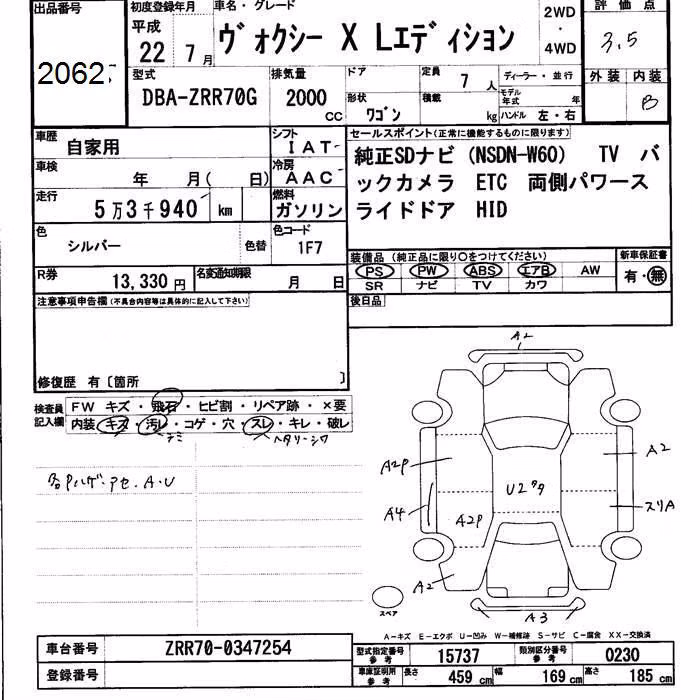 出品番号 初度登録年月 車名・グレード 2WD 評価点
平成 ヴォクシー X Lエディション ・ 3.5
22年 7月 4WD
2062 型式 排気量 ドア 定員 7人 ディーラー・並行 外装 内装
DBA-ZRR70G 2000cc 形状 ワゴン 積載 kg モデル年式 年 B
ハンドル 左・右
車歴 自家用 シフト IAT セールスポイント(正常に機能するものに限ります)
車検 年 月( 日) 冷房 AAC 純正SDナビ (NSDN-W60) TV バ
走行 5万3千940 km 燃料 ガソリン ックカメラ ETC 両側パワース
ライドドア HID
色 シルバー 色替 色コード 1F7
装備品 (純正品に限り○をつけてください) 新車保証書
R券 13,330円 名変通知期限 月 日 PS PW ABS エアB AW 有・無
SR ナビ TV カワ
注意事項申告欄(不具合内容等は具体的に記入して下さい) 後日品
修復歴 有〔箇所 〕
検査員 FW キズ・飛石・ヒビ割・リペア跡・×要
記入欄 内装・キズ・汚レ・コゲ・穴・スレ・キレ・破レ
ヘタリ・シワ
各Pハゲ・アセ・A・U
A2
A2P A2
U2
A4 A2P スリA
A2
A3
スペア
A-キズ E-エクボ U-凹み W-補修跡 S-サビ C-腐食 XX-交換済
車台番号 ZRR70-0347254 型式指定番号 参考 15737 類別区分番号 参考 0230
登録番号 車庫証明用 参考 長さ 459cm 幅 169cm 高さ 185cm